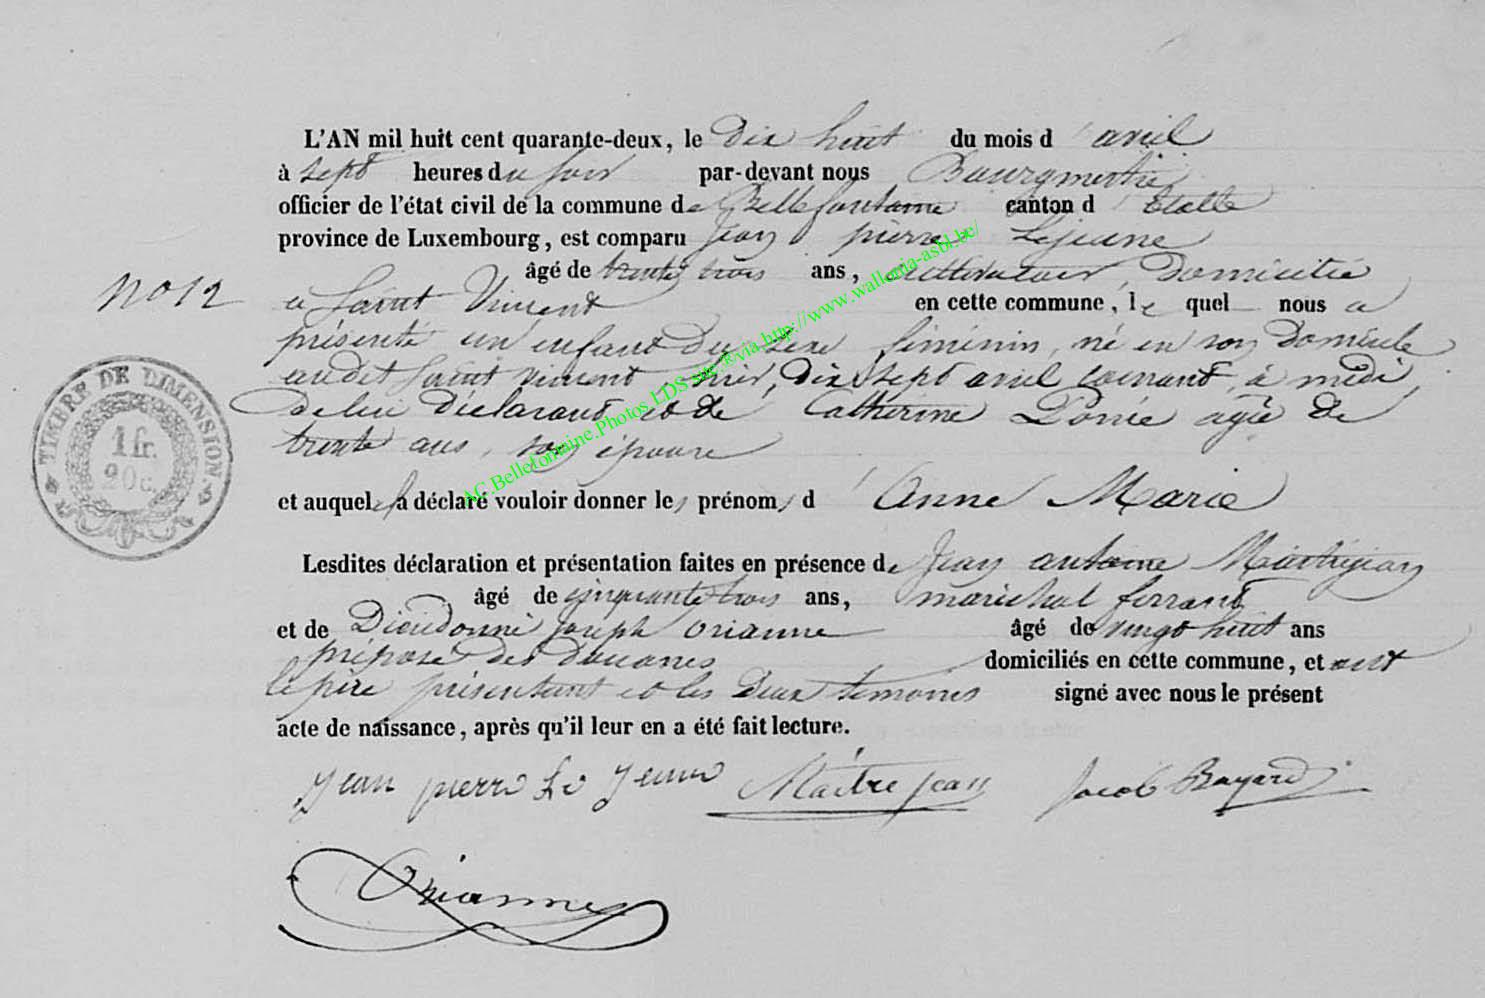 L'AN mil huit cent quarante-deux, le Dix huit du mois d'avril
à sept heures du soir par-devant nous Bourgmestre
officier de l'état civil de la commune de Bellefontaine canton d'Etalle
province de Luxembourg, est comparu Jean pierre Lejeune
âgé de trente trois ans, cultivateur, Domicilié
no 12
a Saint Vincent en cette commune, lequel nous a
présenté un enfant Du sexe féminin, né en son Domicile
audit Saint Vincent, hier, Dix sept avril courant, à midi,
De lui Déclarant et de Catherine agée de
trente ans, son épouse
et auquel a déclaré vouloir donner les prénoms d'Anne Marie
TIMBRE DE DIMENSION.
1 fr.
20 c.
Lesdites déclaration et présentation faites en présence de Jean antoine
âgé de cinquante trois ans, maréchal ferrant
et de Dieudonné joseph Orianne âgé de vingt huit ans
préposé des Douanes domiciliés en cette commune, et ont
le père présentant et les Deux temoins signé avec nous le présent
acte de naissance, après qu'il leur en a été fait lecture.
Jean pierre Le Jeune Maitrejean Jacob Bayard
Orianne
AC.Bellefontaine.Photos LDS site @via http://www.wallonia-asbl.be/